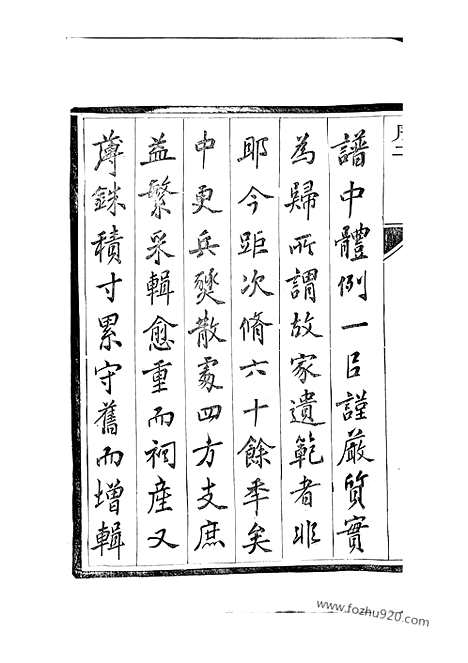 譜中體例一㠯謹嚴質實
為歸所謂故家遺範者非
耶今距次脩六十餘季矣
中更兵燹散處四方支庶
益繁采輯愈重而祠產又
薄銖積寸累守舊而增輯
www.fozhu920.com